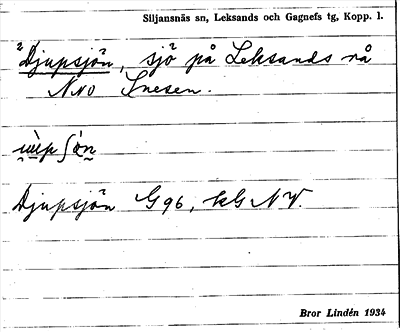 Siljansnäs sn, Leksands och Gagnefs tg, Kopp. l.
2 Djupsjön, sjö på Leksands rå
NNO Snesen.
Djupsjön G96, kG NV.
Bror Lindén 1934